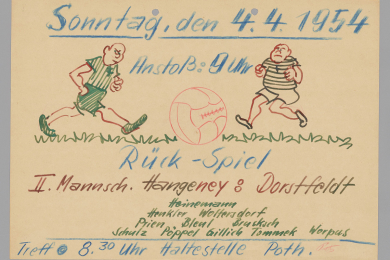 Sonntag, den 4.4.1954
Anstoß: 9 Uhr
Rück-Spiel
II. Mannsch. Hangeney : Dorstfeldt
Heinemann
Henkler Woltersdorf
Prien, Bleul
Schulz Pöppel Gillich Timmek Worpus
Treff 8.30 Uhr Haltestelle Poth.